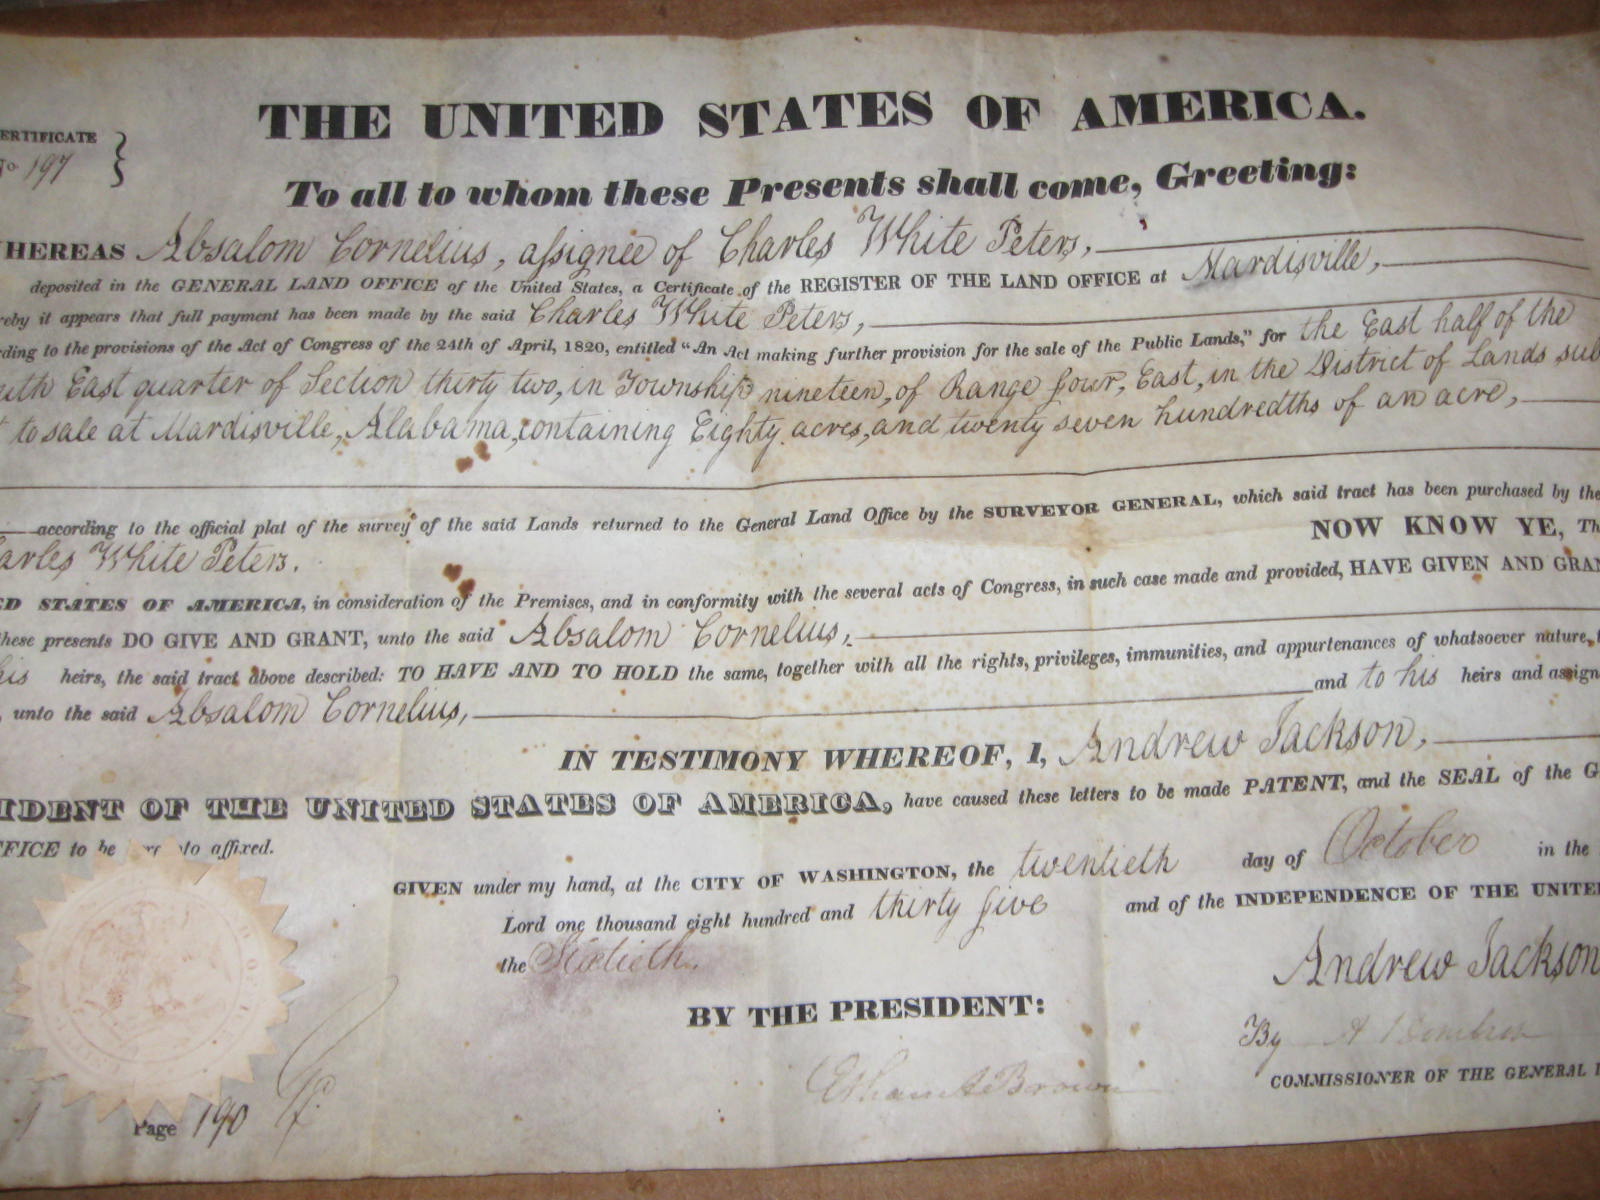 THE UNITED STATES OF AMERICA.
ERTIFICATE
No 197
To all to whom these Presents shall come, Greeting:
HEREAS Absalom Cornelius, assignee of Charles White Peters,
deposited in the GENERAL LAND OFFICE of the United States, a Certificate of the REGISTER OF THE LAND OFFICE at Mardisville,
reby it appears that full payment has been made by the said Charles White Peters,
rding to the provisions of the Act of Congress of the 24th of April, 1820, entitled "An Act making further provision for the sale of the Public Lands," for the East half of the
uth East quarter of Section thirty two, in Township nineteen, of Range four, East, in the District of Lands sub
t to sale at Mardisville, Alabama, containing Eighty acres, and twenty seven hundredths of an acre,
according to the official plat of the survey of the said Lands returned to the General Land Office by the SURVEYOR GENERAL, which said tract has been purchased by the
arles White Peters. NOW KNOW YE, Th
ED STATES OF AMERICA, in consideration of the Premises, and in conformity with the several acts of Congress, in such case made and provided, HAVE GIVEN AND GRAN
these presents DO GIVE AND GRANT, unto the said Absalom Cornelius,
his heirs, the said tract above described: TO HAVE AND TO HOLD the same, together with all the rights, privileges, immunities, and appurtenances of whatsoever nature, t
, unto the said Absalom Cornelius, and to his heirs and assign
IN TESTIMONY WHEREOF, I, Andrew Jackson,
IDENT OF THE UNITED STATES OF AMERICA, have caused these letters to be made PATENT, and the SEAL of the G
FFICE to be hereunto affixed.
GIVEN under my hand, at the CITY OF WASHINGTON, the twentieth day of October in the
Lord one thousand eight hundred and thirty five and of the INDEPENDENCE OF THE UNITE
the Sixtieth.
Andrew Jackson
BY THE PRESIDENT:
By A
Ethan A Brown
COMMISSIONER OF THE GENERAL
Page 190